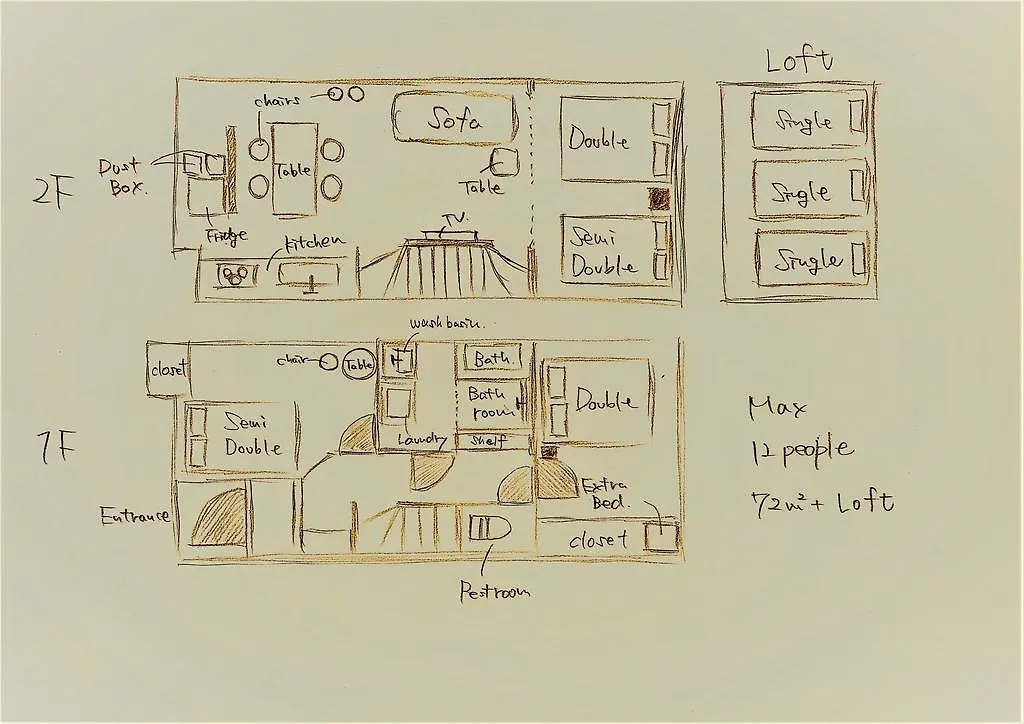 Loft
chairs
Sofa
Double
Single
Dust
Box.
Table
Table
2F
Single
Fridge
Kitchen
TV.
Semi
Double
Single
washbasin.
closet
chair
Table
Bath.
Bath
room
Double
Semi
Double
Laundry
shelf
1F
Max
12 people
72m² + Loft
Entrance
Extra
Bed.
closet
Restroom